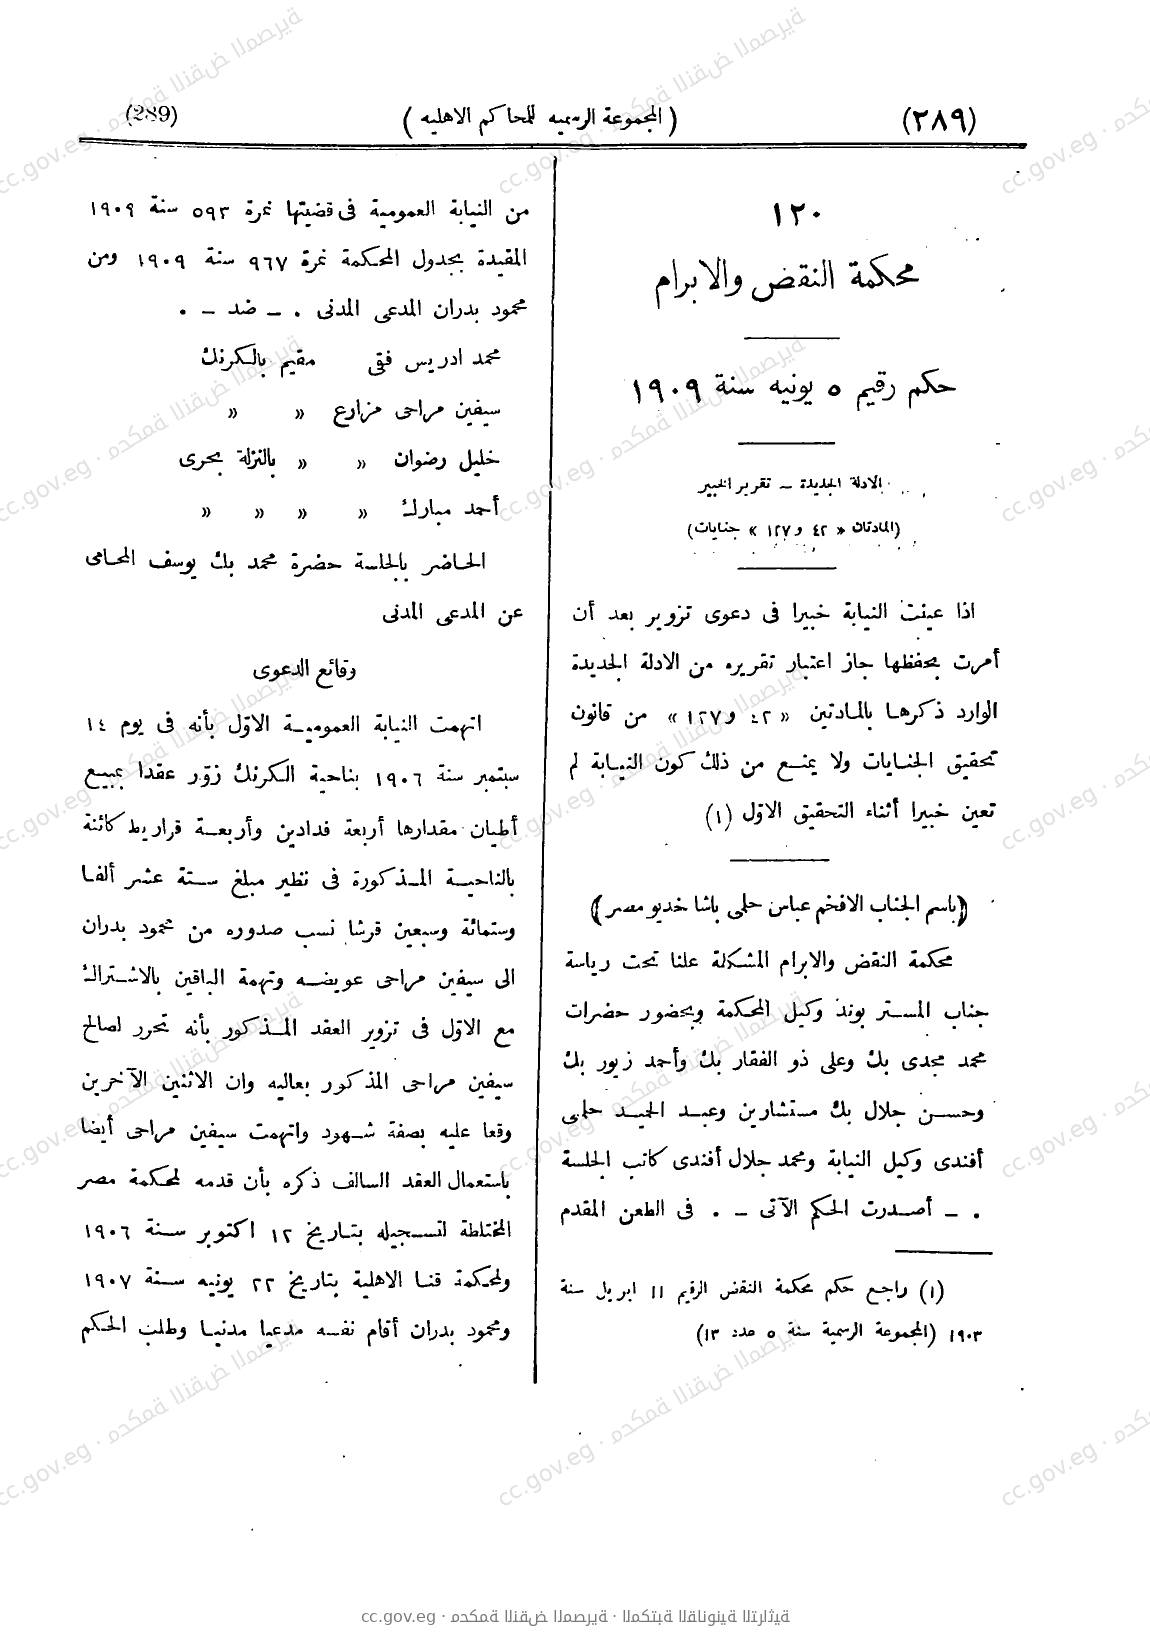 (٢٨٩)
( المجموعة الرسميه للمحاكم الاهليه )
(289)
١٢٠
محكمة النقض والابرام
حكم رقيم ٥ يونيه سنة ١٩٠٩
الادلة الجديدة – تقرير الخبير
(المادتان « ٤٢ و ١٢٧ » جنايات)
اذا عينت النيابة خبيرا فى دعوى تزوير بعد أن
أمرت بحفظها جاز اعتبار تقريره من الادلة الجديدة
الوارد ذكرها بالمادتين « ٤٢ و ١٢٧ » من قانون
تحقيق الجنايات ولا يمنع من ذلك كون النيابة لم
تعين خبيرا أثناء التحقيق الاوّل (١)
(باسم الجناب الافخم عباس حلمى باشا خديو مصر)
محكمة النقض والابرام المشكلة علنا تحت رياسة
جناب المستر بوند وكيل المحكمة وبحضور حضرات
محمد مجدى بك وعلى ذو الفقار بك وأحمد زيور بك
وحسن جلال بك مستشارين وعبد الحميد حلمى
أفندى وكيل النيابة ومحمد جلال أفندى كاتب الجلسة
. – أصدرت الحكم الآتى – . فى الطعن المقدم
(١) راجع حكم محكمة النقض الرقيم ١١ ابريل سنة
١٩٠٣ (المجموعة الرسمية سنة ٥ عدد ١٣)
من النيابة العمومية فى قضيتها نمرة ٥٩٣ سنة ١٩٠٩
المقيدة بجدول المحكمة نمرة ٩٦٧ سنة ١٩٠٩ ومن
محمود بدران المدعى المدنى . – ضد – .
محمد ادريس فقى مقيم بالكرنك
سيفين مراحى مزارع » »
خليل رضوان » » بالنزلة بحرى
أحمد مبارك » » » »
الحاضر بالجلسة حضرة محمد بك يوسف المحامى
عن المدعى المدنى
وقائع الدعوى
اتهمت النيابة العمومية الاوّل بأنه فى يوم ١٤
سبتمبر سنة ١٩٠٦ بناحية الكرنك زوّر عقدا ببيع
أطيان مقدارها أربعة فدادين وأربعة قراريط كائنة
بالناحية المذكورة فى نظير مبلغ ستة عشر ألفا
وستمائة وسبعين قرشا نسب صدوره من محمود بدران
الى سيفين مراحى عويضه وتهمة الباقين بالاشتراك
مع الاوّل فى تزوير العقد المذكور بأنه تحرر لصالح
سيفين مراحى المذكور بعاليه وان الاثنين الآخرين
وقعا عليه بصفة شهود واتهمت سيفين مراحى أيضا
باستعمال العقد السالف ذكره بأن قدمه لمحكمة مصر
المختلطة لتسجيله بتاريخ ١٢ اكتوبر سنة ١٩٠٦
ولمحكمة قنا الاهلية بتاريخ ٢٢ يونيه سنة ١٩٠٧
ومحمود بدران أقام نفسه مدعيا مدنيا وطلب الحكم
cc.gov.eg · محكمة النقض المصرية · المكتبة القانونية التراثية